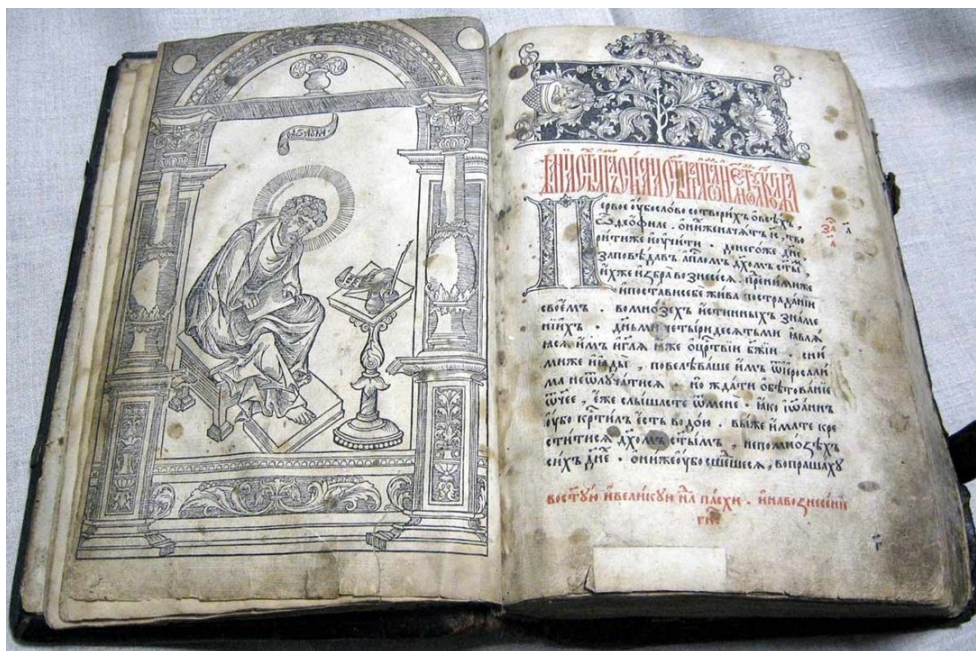 Первое оубо слово сотворихъ ѡ всѣхъ ,
ѽ ѳеофиле . ѡ нихже начатъ і҃с , тво
рити же и оучити . до негоже дн҃е ,
заповѣдавъ ап҃лом дх҃омъ ст҃ым ,
ихже избра вознесеся . пре ними же
и постави себе жива по страдании
своемъ . во мнозех истинныхъ знаме
ниихъ . дн҃ьми четыридесятьми являѧ
юся имъ и гл҃я яже о цр҃ствии бж҃ии , с ни
миже и яды , повелѣваше имъ ѿ іерⷭ҇али
ма не ѿлучатися . но ждати обѣтование
ѿчее , еже слышасте ѿ мене . яко іѡаннъ
оубо кр҃тилъ есть водою . вы же имате кре
ститися дх҃омъ ст҃ымъ , не по мнозѣхъ
сихъ дн҃е . они же оубо сшешеся , вопрашаху
во ст҃ую и великую нл҃я пасхи . и на вознесение
гн҃е